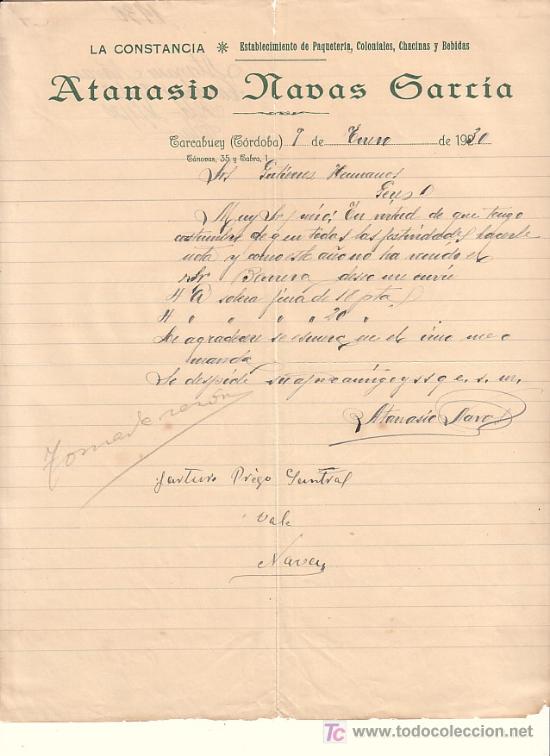 LA CONSTANCIA ✻ Establecimiento de Paquetería, Coloniales, Chacinas y Bebidas
Atanasio Navas García
Carcabuey (Córdoba) 7 de Enero de 1930
Cánovas, 35 y Cabra, 1
Srs Gutierres Hermanos
Muy Srs mios: En virtud de que tengo
costumbre de que en todas las festividades hacerle
nota y como este año no ha venido el
Sr Barrera deseo me envie
4 @ solera fina de 18 pta
4 " " " " 20 "
Le agradecere se esmere en el vino me
manda
Se despide su afmo amigo y s s q e. s. m.
Atanasio Navas
Tomado razón
Arturo Prigo
Vale
Navas
TC www.todocoleccion.net